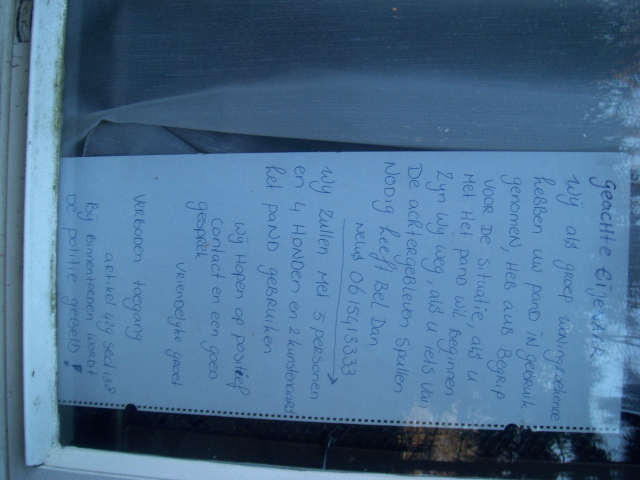 geachte Eigenaar
Wij als groep woningzoekende
hebben uw pand in gebruik
genomen, Heb aub Begrip
voor De situatie, als u
Met Het pand wil Beginnen
Zyn wy weg, als u iets van
De achtergebleven Spullen
Nodig heeft Bel Dan
Wy zullen Met 5 personen
en 4 HONDEN en 2
het pand gebruiken
Wij Hopen op positief
contact en een goed
gesprek
vriendelyke groet
verboden toegang
artikel 429 sexl 138
By Binnentreden wordt
De politie gebeld!